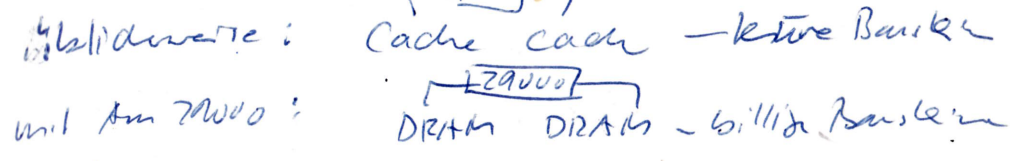 üblicherweise: Cache Cache – teure Baustein
29000
mit Am 29000: DRAM DRAM – billige Bausteine